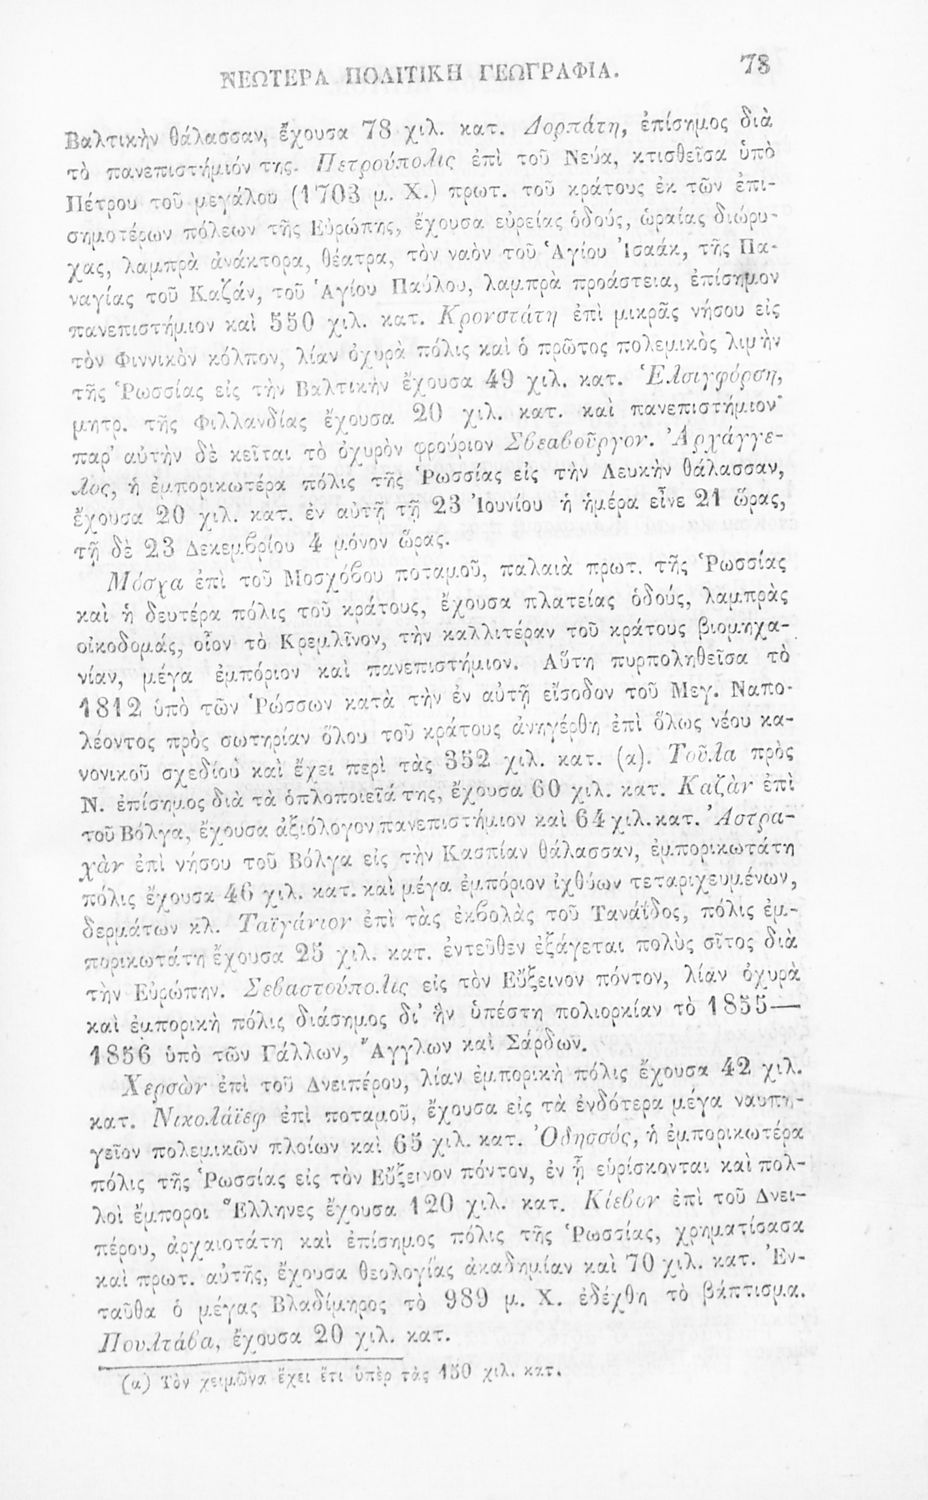 ΝΕΩΤΕΡΑ ΠΟΛΙΤΙΚΗ ΓΕΩΓΡΑΦΙΑ. 73
Βαλτικὴν θάλασσαν, ἔχουσα 78 χιλ. κατ. Δορπάτη, ἐπίσημος διὰ
τὸ πανεπιστήμιόν της. Πετρούπολις ἐπὶ τοῦ Νεύα, κτισθεῖσα ὑπὸ
Πέτρου τοῦ μεγάλου (1703 μ. Χ.) πρωτ. τοῦ κράτους ἐκ τῶν ἐπι-
σημοτέρων πόλεων τῆς Εὐρώπης, ἔχουσα εὐρείας ὁδούς, ὡραίας διώρυ-
χας, λαμπρὰ ἀνάκτορα, θέατρα, τὸν ναὸν τοῦ Ἁγίου Ἰσαάκ, τῆς Πα-
ναγίας τοῦ Καζάν, τοῦ Ἁγίου Παύλου, λαμπρὰ προάστεια, ἐπίσημον
πανεπιστήμιον καὶ 550 χιλ. κατ. Κρονστάτη ἐπὶ μικρᾶς νήσου εἰς
τὸν Φιννικὸν κόλπον, λίαν ὀχυρὰ πόλις καὶ ὁ πρῶτος πολεμικὸς λιμὴν
τῆς Ῥωσσίας εἰς τὴν Βαλτικὴν ἔχουσα 49 χιλ. κατ. Ἑλσιγφόρση,
μητρ. τῆς Φιλλανδίας ἔχουσα 20 χιλ. κατ. καὶ πανεπιστήμιον·
παρ' αὐτὴν δὲ κεῖται τὸ ὀχυρὸν φρούριον Σβεαβοῦργον. Ἀρχάγγε-
λος, ἡ ἐμπορικωτέρα πόλις τῆς Ῥωσσίας εἰς τὴν Λευκὴν θάλασσαν,
ἔχουσα 20 χιλ. κατ. ἐν αὐτῇ τῇ 23 Ἰουνίου ἡ ἡμέρα εἶνε 21 ὥρας,
τῇ δὲ 23 Δεκεμβρίου 4 μόνον ὥρας.
Μόσχα ἐπὶ τοῦ Μοσχόβου ποταμοῦ, παλαιὰ πρωτ. τῆς Ῥωσσίας
καὶ ἡ δευτέρα πόλις τοῦ κράτους, ἔχουσα πλατείας ὁδούς, λαμπρὰς
οἰκοδομάς, οἷον τὸ Κρεμλῖνον, τὴν καλλιτέραν τοῦ κράτους βιομηχα-
νίαν, μέγα ἐμπόριον καὶ πανεπιστήμιον. Αὕτη πυρποληθεῖσα τὸ
1812 ὑπὸ τῶν Ῥώσσων κατὰ τὴν ἐν αὐτῇ εἴσοδον τοῦ Μεγ. Ναπο-
λέοντος πρὸς σωτηρίαν ὅλου τοῦ κράτους ἀνηγέρθη ἐπὶ ὅλως νέου κα-
νονικοῦ σχεδίου καὶ ἔχει περὶ τὰς 352 χιλ. κατ. (α). Τοῦλα πρὸς
Ν. ἐπίσημος διὰ τὰ ὁπλοποιεῖά της, ἔχουσα 60 χιλ. κατ. Καζὰν ἐπὶ
τοῦ Βόλγα, ἔχουσα ἀξιόλογον πανεπιστήμιον καὶ 64 χιλ. κατ. Ἀστρα-
χὰν ἐπὶ νήσου τοῦ Βόλγα εἰς τὴν Κασπίαν θάλασσαν, ἐμπορικωτάτη
πόλις ἔχουσα 46 χιλ. κατ. καὶ μέγα ἐμπόριον ἰχθύων τεταριχευμένων,
δερμάτων κλ. Ταϊγάνιον ἐπὶ τὰς ἐκβολὰς τοῦ Τανάϊδος, πόλις ἐμ-
πορικωτάτη ἔχουσα 25 χιλ. κατ. ἐντεῦθεν ἐξάγεται πολὺς σῖτος διὰ
τὴν Εὐρώπην. Σεβαστούπολις εἰς τὸν Εὔξεινον πόντον, λίαν ὀχυρὰ
καὶ ἐμπορικὴ πόλις διάσημος δι' ἣν ὑπέστη πολιορκίαν τὸ 1855—
1856 ὑπὸ τῶν Γάλλων, Ἄγγλων καὶ Σάρδων.
Χερσὼν ἐπὶ τοῦ Δνειπέρου, λίαν ἐμπορικὴ πόλις ἔχουσα 42 χιλ.
κατ. Νικολάϊεφ ἐπὶ ποταμοῦ, ἔχουσα εἰς τὰ ἐνδότερα μέγα ναυπη-
γεῖον πολεμικῶν πλοίων καὶ 65 χιλ. κατ. Ὀδησσός, ἡ ἐμπορικωτέρα
πόλις τῆς Ῥωσσίας εἰς τὸν Εὔξεινον πόντον, ἐν ᾗ εὑρίσκονται καὶ πολ-
λοὶ ἔμποροι Ἕλληνες ἔχουσα 120 χιλ. κατ. Κίεβον ἐπὶ τοῦ Δνει-
πέρου, ἀρχαιοτάτη καὶ ἐπίσημος πόλις τῆς Ῥωσσίας, χρηματίσασα
καὶ πρωτ. αὐτῆς, ἔχουσα θεολογίας ἀκαδημίαν καὶ 70 χιλ. κατ. Ἐν-
ταῦθα ὁ μέγας Βλαδίμηρος τὸ 989 μ. Χ. ἐδέχθη τὸ βάπτισμα.
Πουλτάβα, ἔχουσα 20 χιλ. κατ.
(α) Τὸν χειμῶνα ἔχει ἔτι ὑπὲρ τὰς 150 χιλ. κατ.